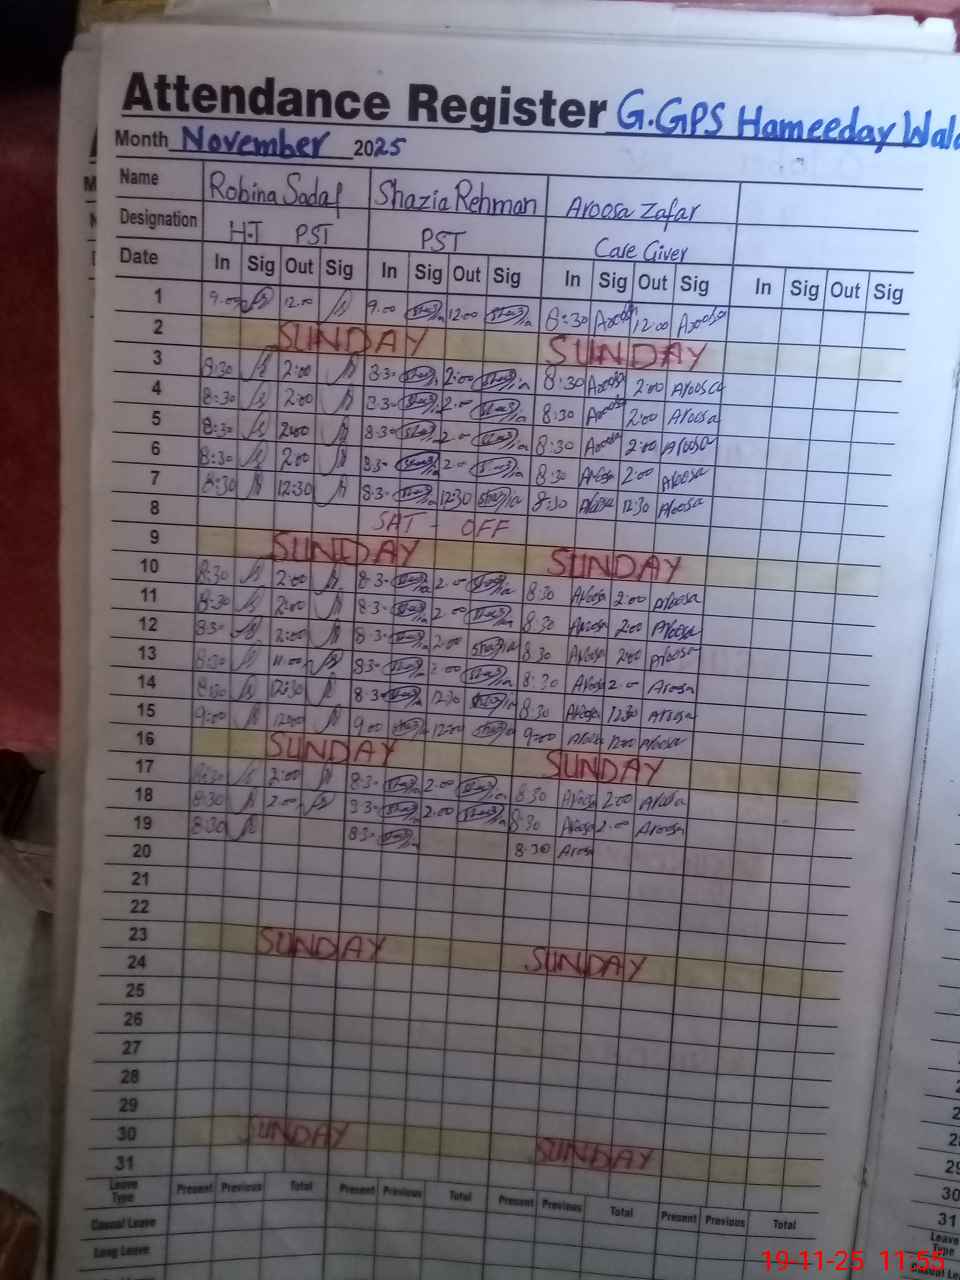 Attendance Register G.GPS Hameeday Wala
Month November 2025
Name Robina Sadaf Shazia Rehman Aroosa Zafar
Designation H.T PST PST Care Giver
Date In Sig Out Sig In Sig Out Sig In Sig Out Sig In Sig Out Sig
1 9.00 12.00 9.00 Shazia 12.00 Shazia 8:30 Aroosa 12:00 Aroosa
2 SUNDAY SUNDAY
3 8:30 2:00 8:30 Shazia 2:00 Shazia 8:30 Aroosa 2:00 Aroosa
4 8:30 2:00 8:30 Shazia 2:00 Shazia 8:30 Aroosa 2:00 Aroosa
5 8:30 2:00 8:30 Shazia 2:00 Shazia 8:30 Aroosa 2:00 Aroosa
6 8:30 2:00 8:30 Shazia 2:00 Shazia 8:30 Aroosa 2:00 Aroosa
7 8:30 12:30 8:30 Shazia 12:30 Shazia 8:30 Aroosa 12:30 Aroosa
8 SAT - OFF
9 SUNDAY SUNDAY
10 8:30 2:00 8:30 Shazia 2:00 Shazia 8:30 Aroosa 2:00 Aroosa
11 8:30 2:00 8:30 Shazia 2:00 Shazia 8:30 Aroosa 2:00 Aroosa
12 8:30 2:00 8:30 Shazia 2:00 Shazia 8:30 Aroosa 2:00 Aroosa
13 8:30 11:00 8:30 Shazia 2:00 Shazia 8:30 Aroosa 2:00 Aroosa
14 8:30 12:30 8:30 Shazia 12:30 Shazia 8:30 Aroosa 12:30 Aroosa
15 9:00 12:00 9:00 Shazia 12:00 Shazia 9:00 Aroosa 12:00 Aroosa
16 SUNDAY SUNDAY
17 8:30 2:00 8:30 Shazia 2:00 Shazia 8:30 Aroosa 2:00 Aroosa
18 8:30 2:00 8:30 Shazia 2:00 Shazia 8:30 Aroosa 2:00 Aroosa
19 8:30 8:30 Shazia 8:30 Aroosa
20
21
22
23 SUNDAY SUNDAY
24
25
26
27
28
29
30 SUNDAY SUNDAY
31
Leave Type Present Previous Total Present Previous Total Present Previous Total Present Previous Total
Casual Leave
Long Leave
19-11-25 11:55